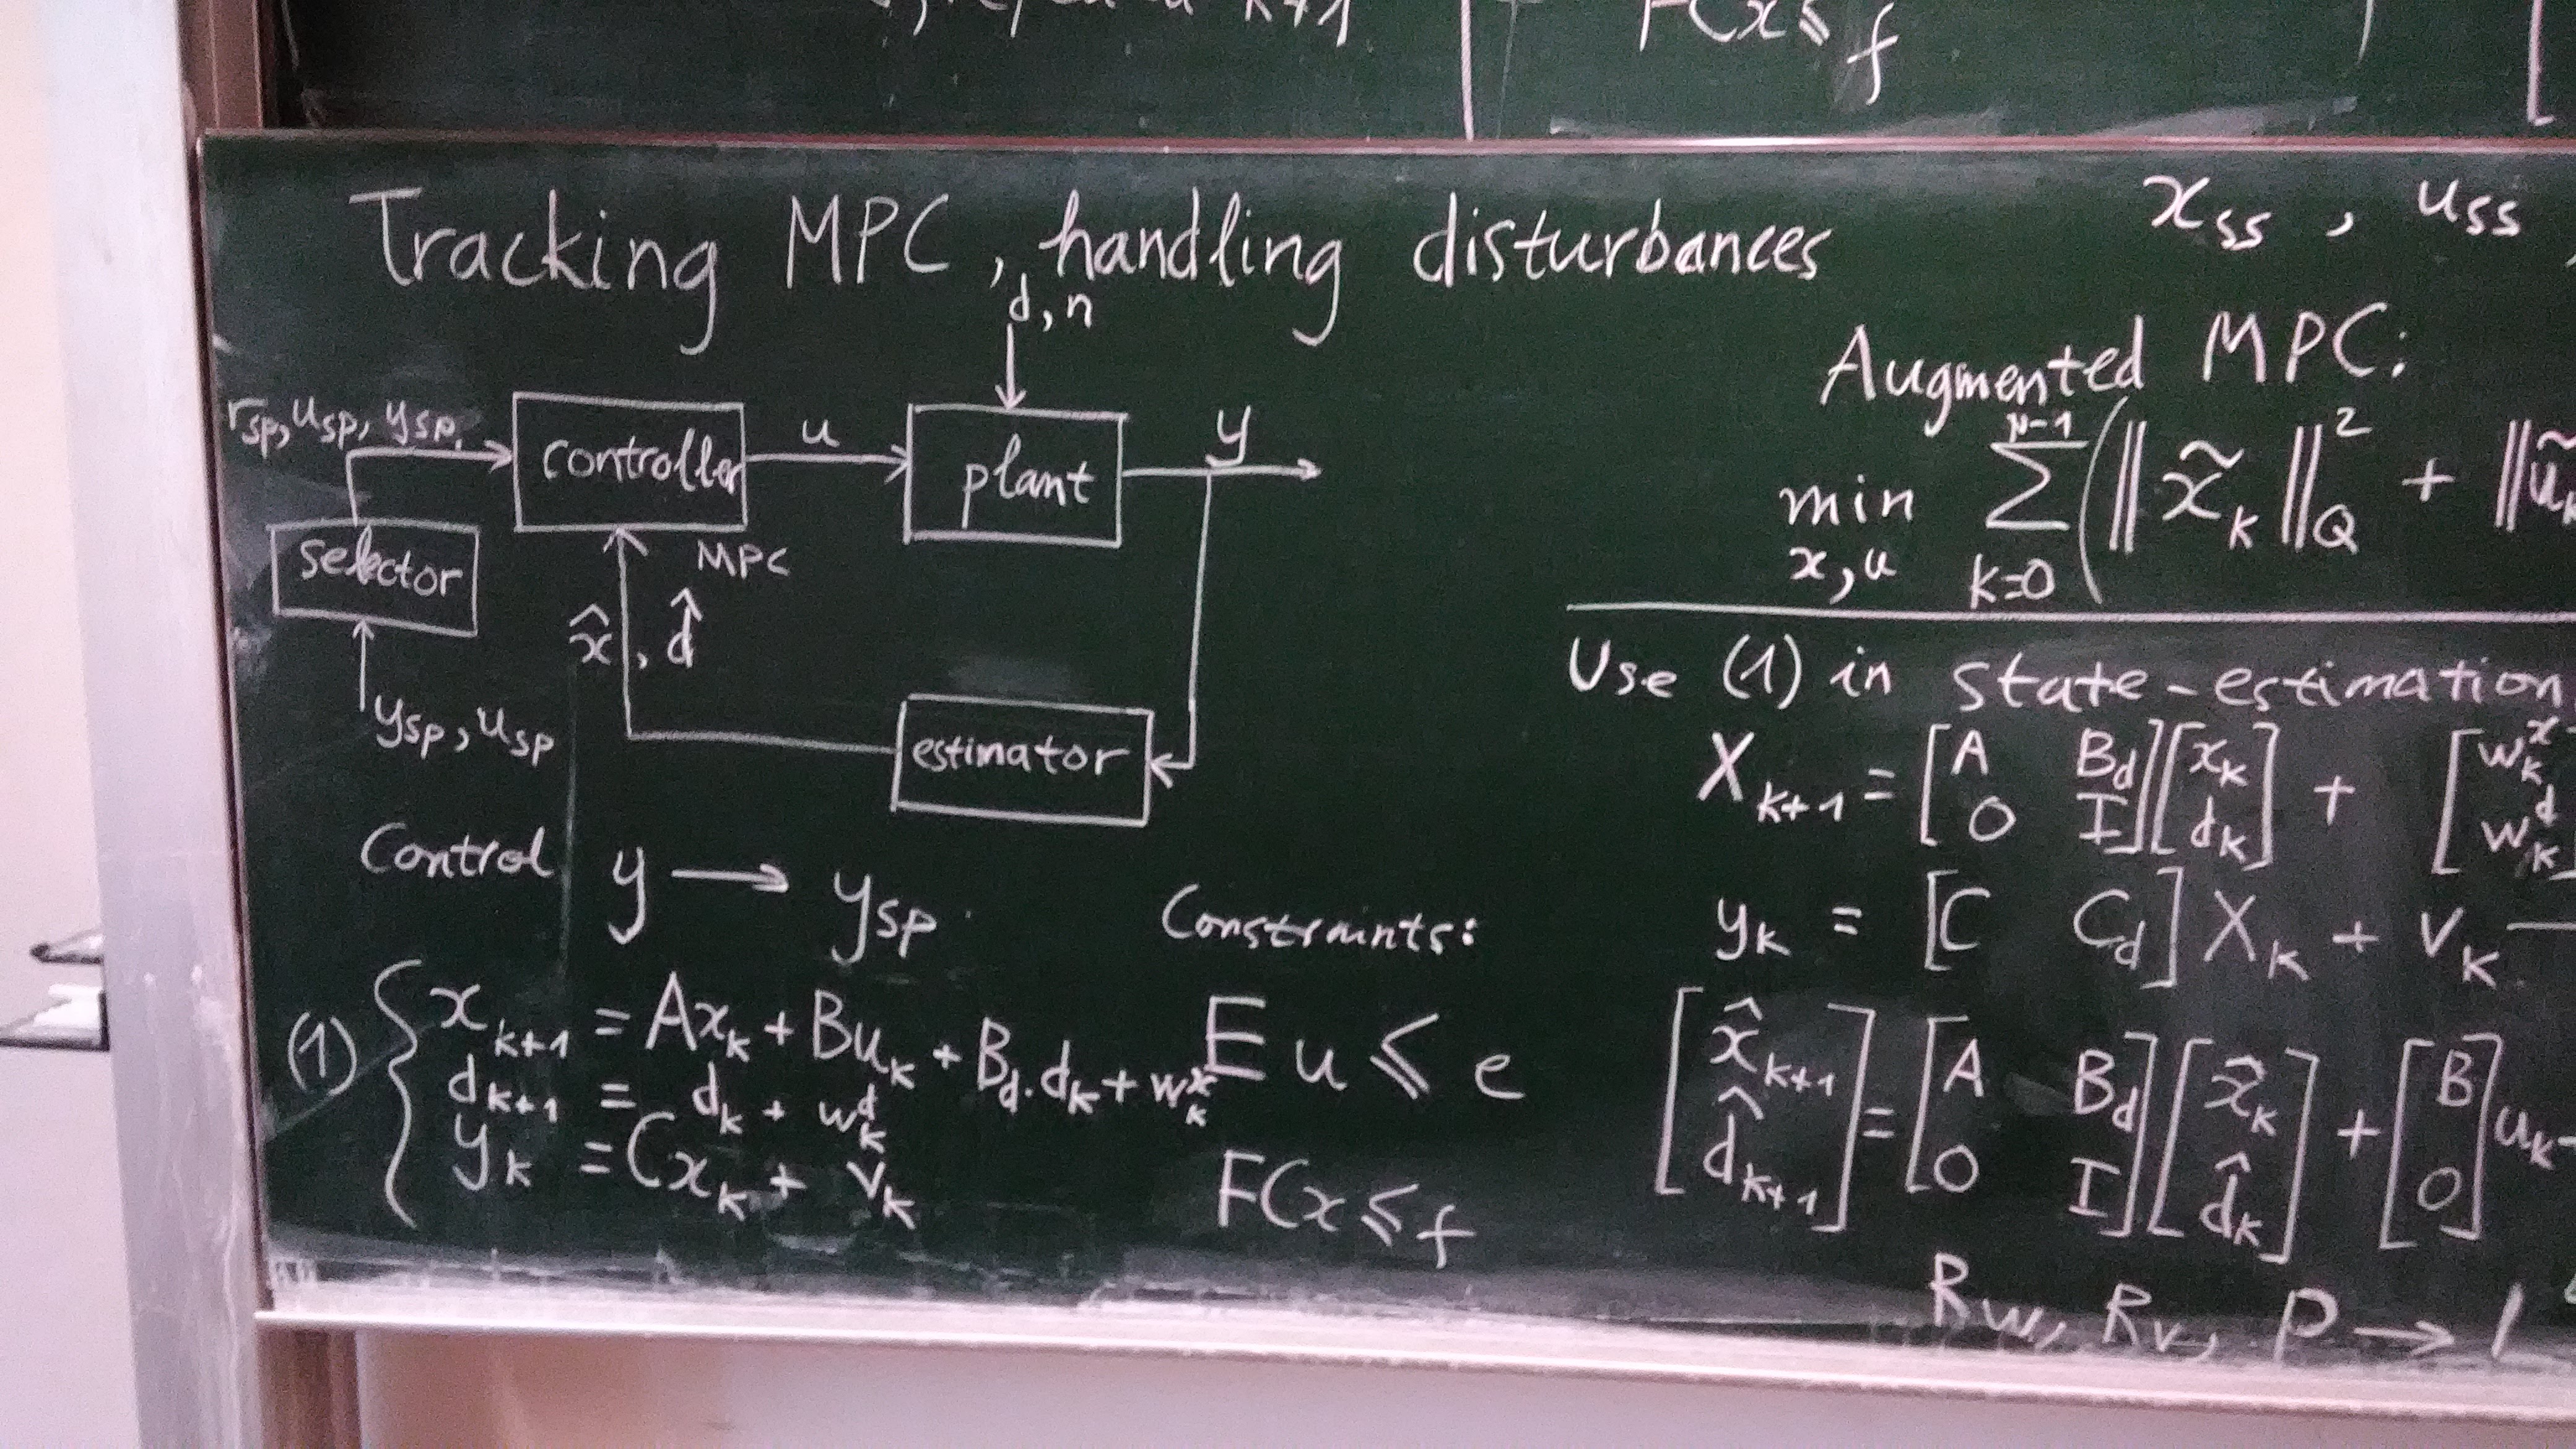 k+1
FCx ≤ f
Tracking MPC, handling disturbances
d, n
r_sp, u_sp, y_sp
controller
u
plant
y
MPC
selector
x̂, d̂
y_sp, u_sp
estimator
Control y → y_sp
(1) { x_{k+1} = Ax_k + Bu_k + B_d . d_k + w_k^x
d_{k+1} = d_k + w_k^d
y_k = Cx_k + v_k
Constraints:
E u ≤ e
FCx ≤ f
x_ss , u_ss
Augmented MPC:
min_{x,u} Σ_{k=0}^{N-1} ( ‖x̃_k‖²_Q + ‖ũ_k
Use (1) in state-estimation
X_{k+1} = [A B_d; 0 I] [x_k; d_k] + [w_k^x; w_k^d
y_k = [C C_d] X_k + v_k
[x̂_{k+1}; d̂_{k+1}] = [A B_d; 0 I] [x̂_k; d̂_k] + [B; 0] u_k
R_w, R_v, P →